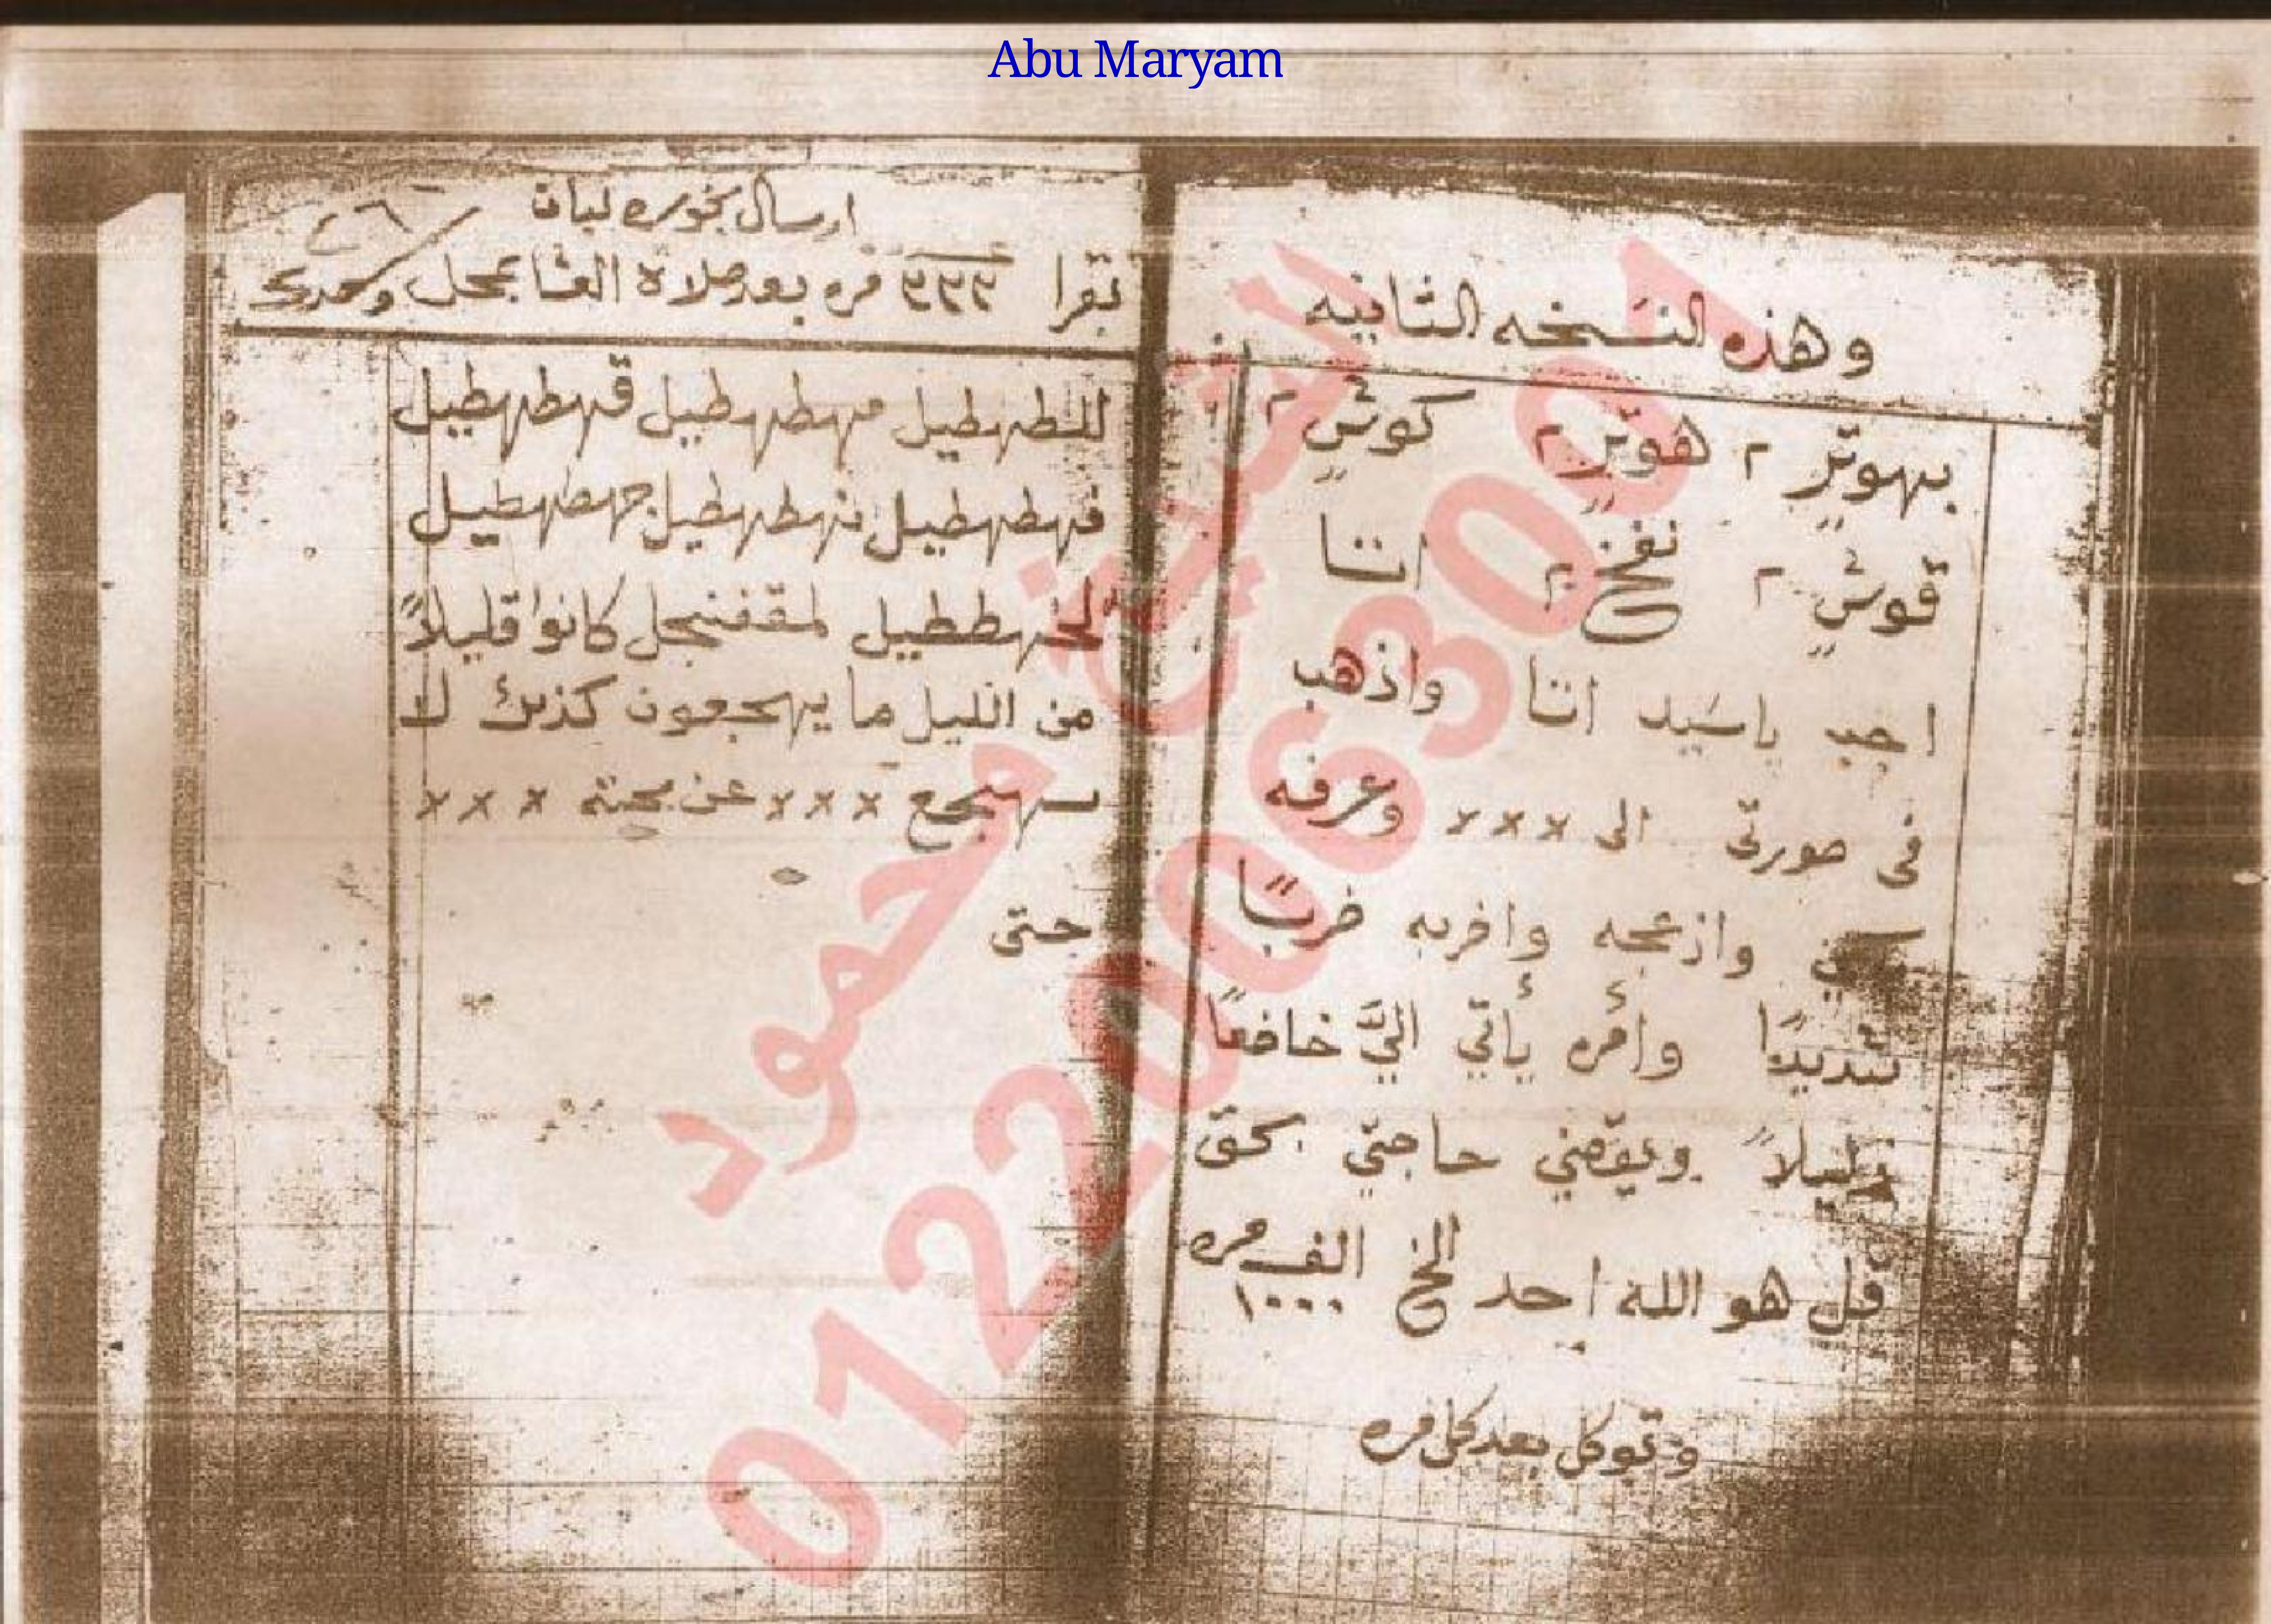 Abu Maryam
وهذه النسخه الثانيه
بهوتر ٢ هوتر ٢ كوش ٢
قوش ٢ نفخ ٢ اتنا
اجب ياسيد اتنا واذهب
في صورتي الى ××× وعرفه
وازعجه واضربه ضربًا
شديدًا وأمره يأتي اليَّ خاضعًا
ذليلاً ويقضي حاجتي بحق
قل هو الله احد الخ الف مره
١٠٠٠
وتوكل بعد كل مره
ارسال بخوره لبان
تقرا ٣٣٣ مره بعد صلاة العشا بمحل وحدك
٢٦
للطهطيل مهطهطيل قهطهطيل
فهطهطيل نهطهطيل جهطهطيل
لخهططيل لمقفنجل كانوا قليلاً
من الليل ما يهجعون كذلك لا
يهجع ××× عن محبة ×××
حتى
الشيخ محمود
01220063001